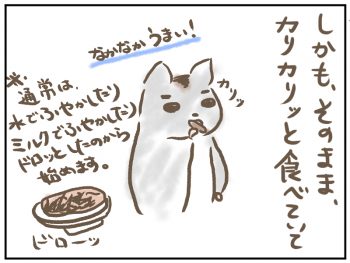 しかも、そのまま、
カリカリッと食べていて
なかなかうまい!
カリッ
※通常は、
水でふやかしたり
ミルクでふやかしたり
ドロッとしたのから
始めます。
ドローッ